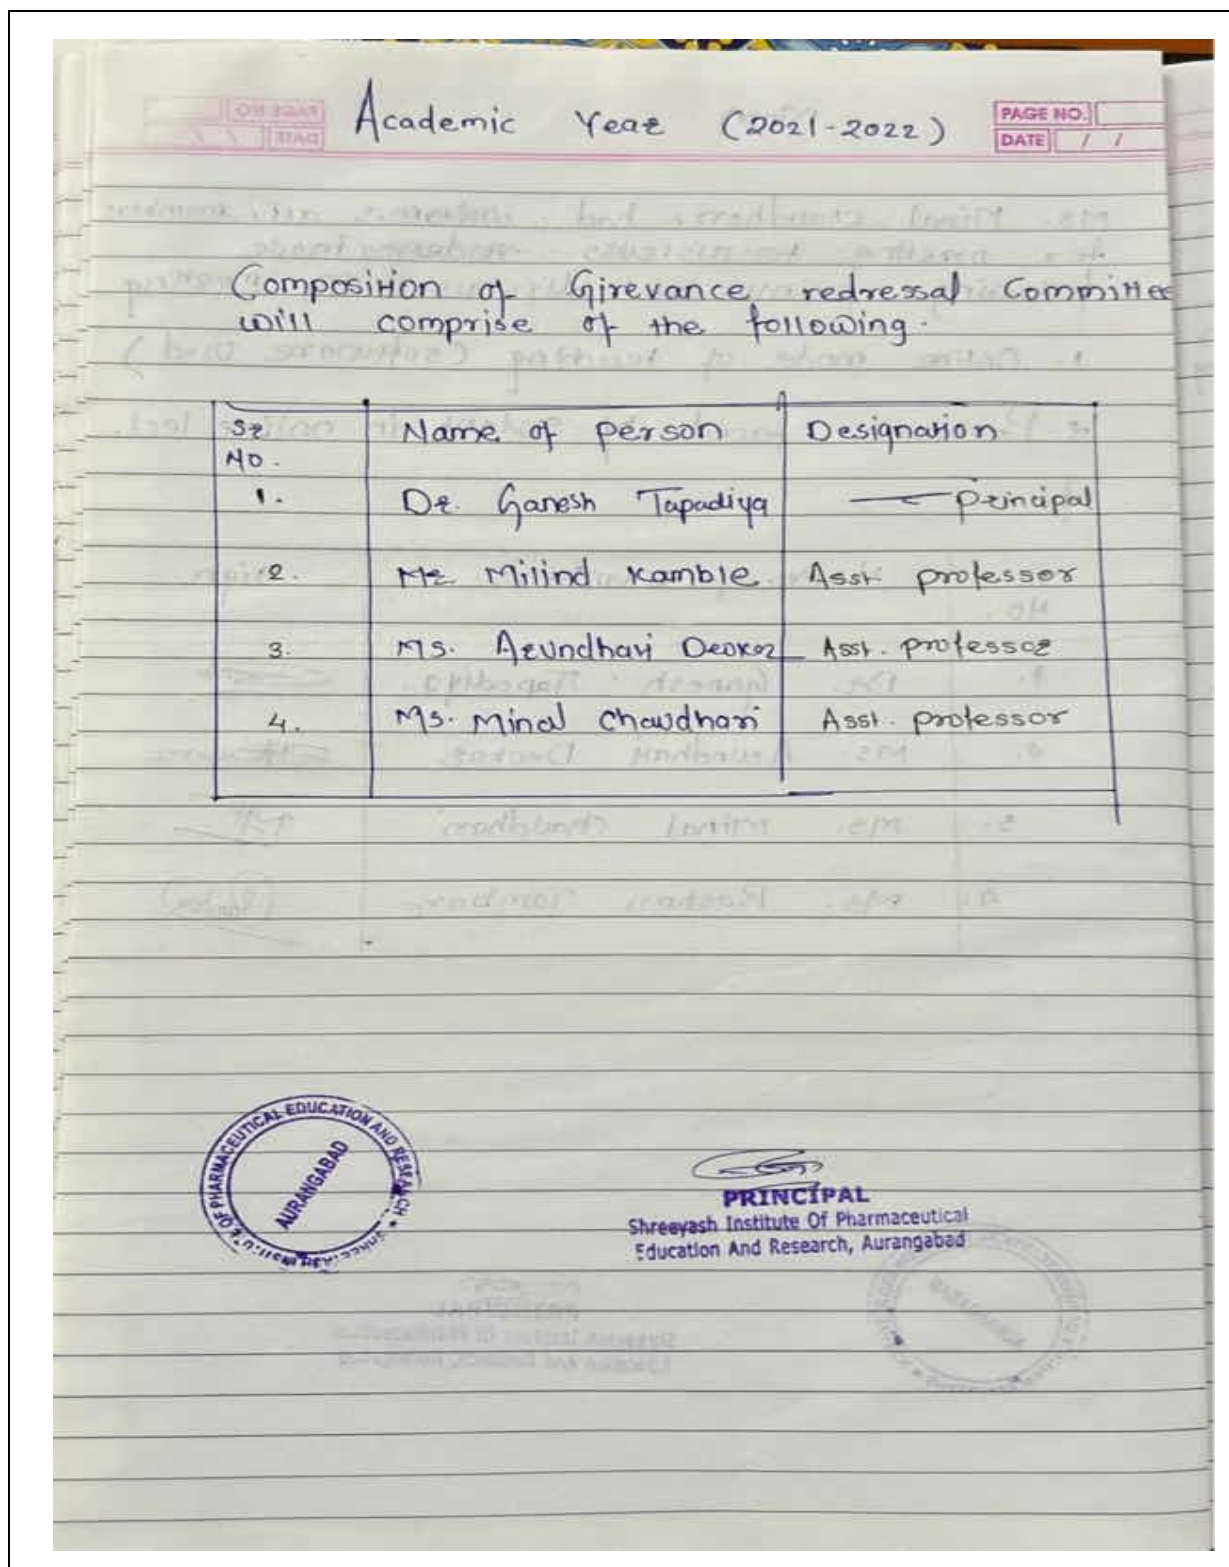 Academic Year (2021-2022)
PAGE NO.
DATE / /
Composition of Girevance redressal Committee
will comprise of the following.
Sr No. Name of person Designation
1. Dr. Ganesh Tapadiya Principal
2. Mr. Milind Kamble Asst. professor
3. Ms. Arundhati Deokar Asst. professor
4. Ms. Minal Chaudhari Asst. professor
OF PHARMACEUTICAL EDUCATION AND RESEARCH
AURANGABAD
PRINCIPAL
Shreeyash Institute Of Pharmaceutical
Education And Research, Aurangabad